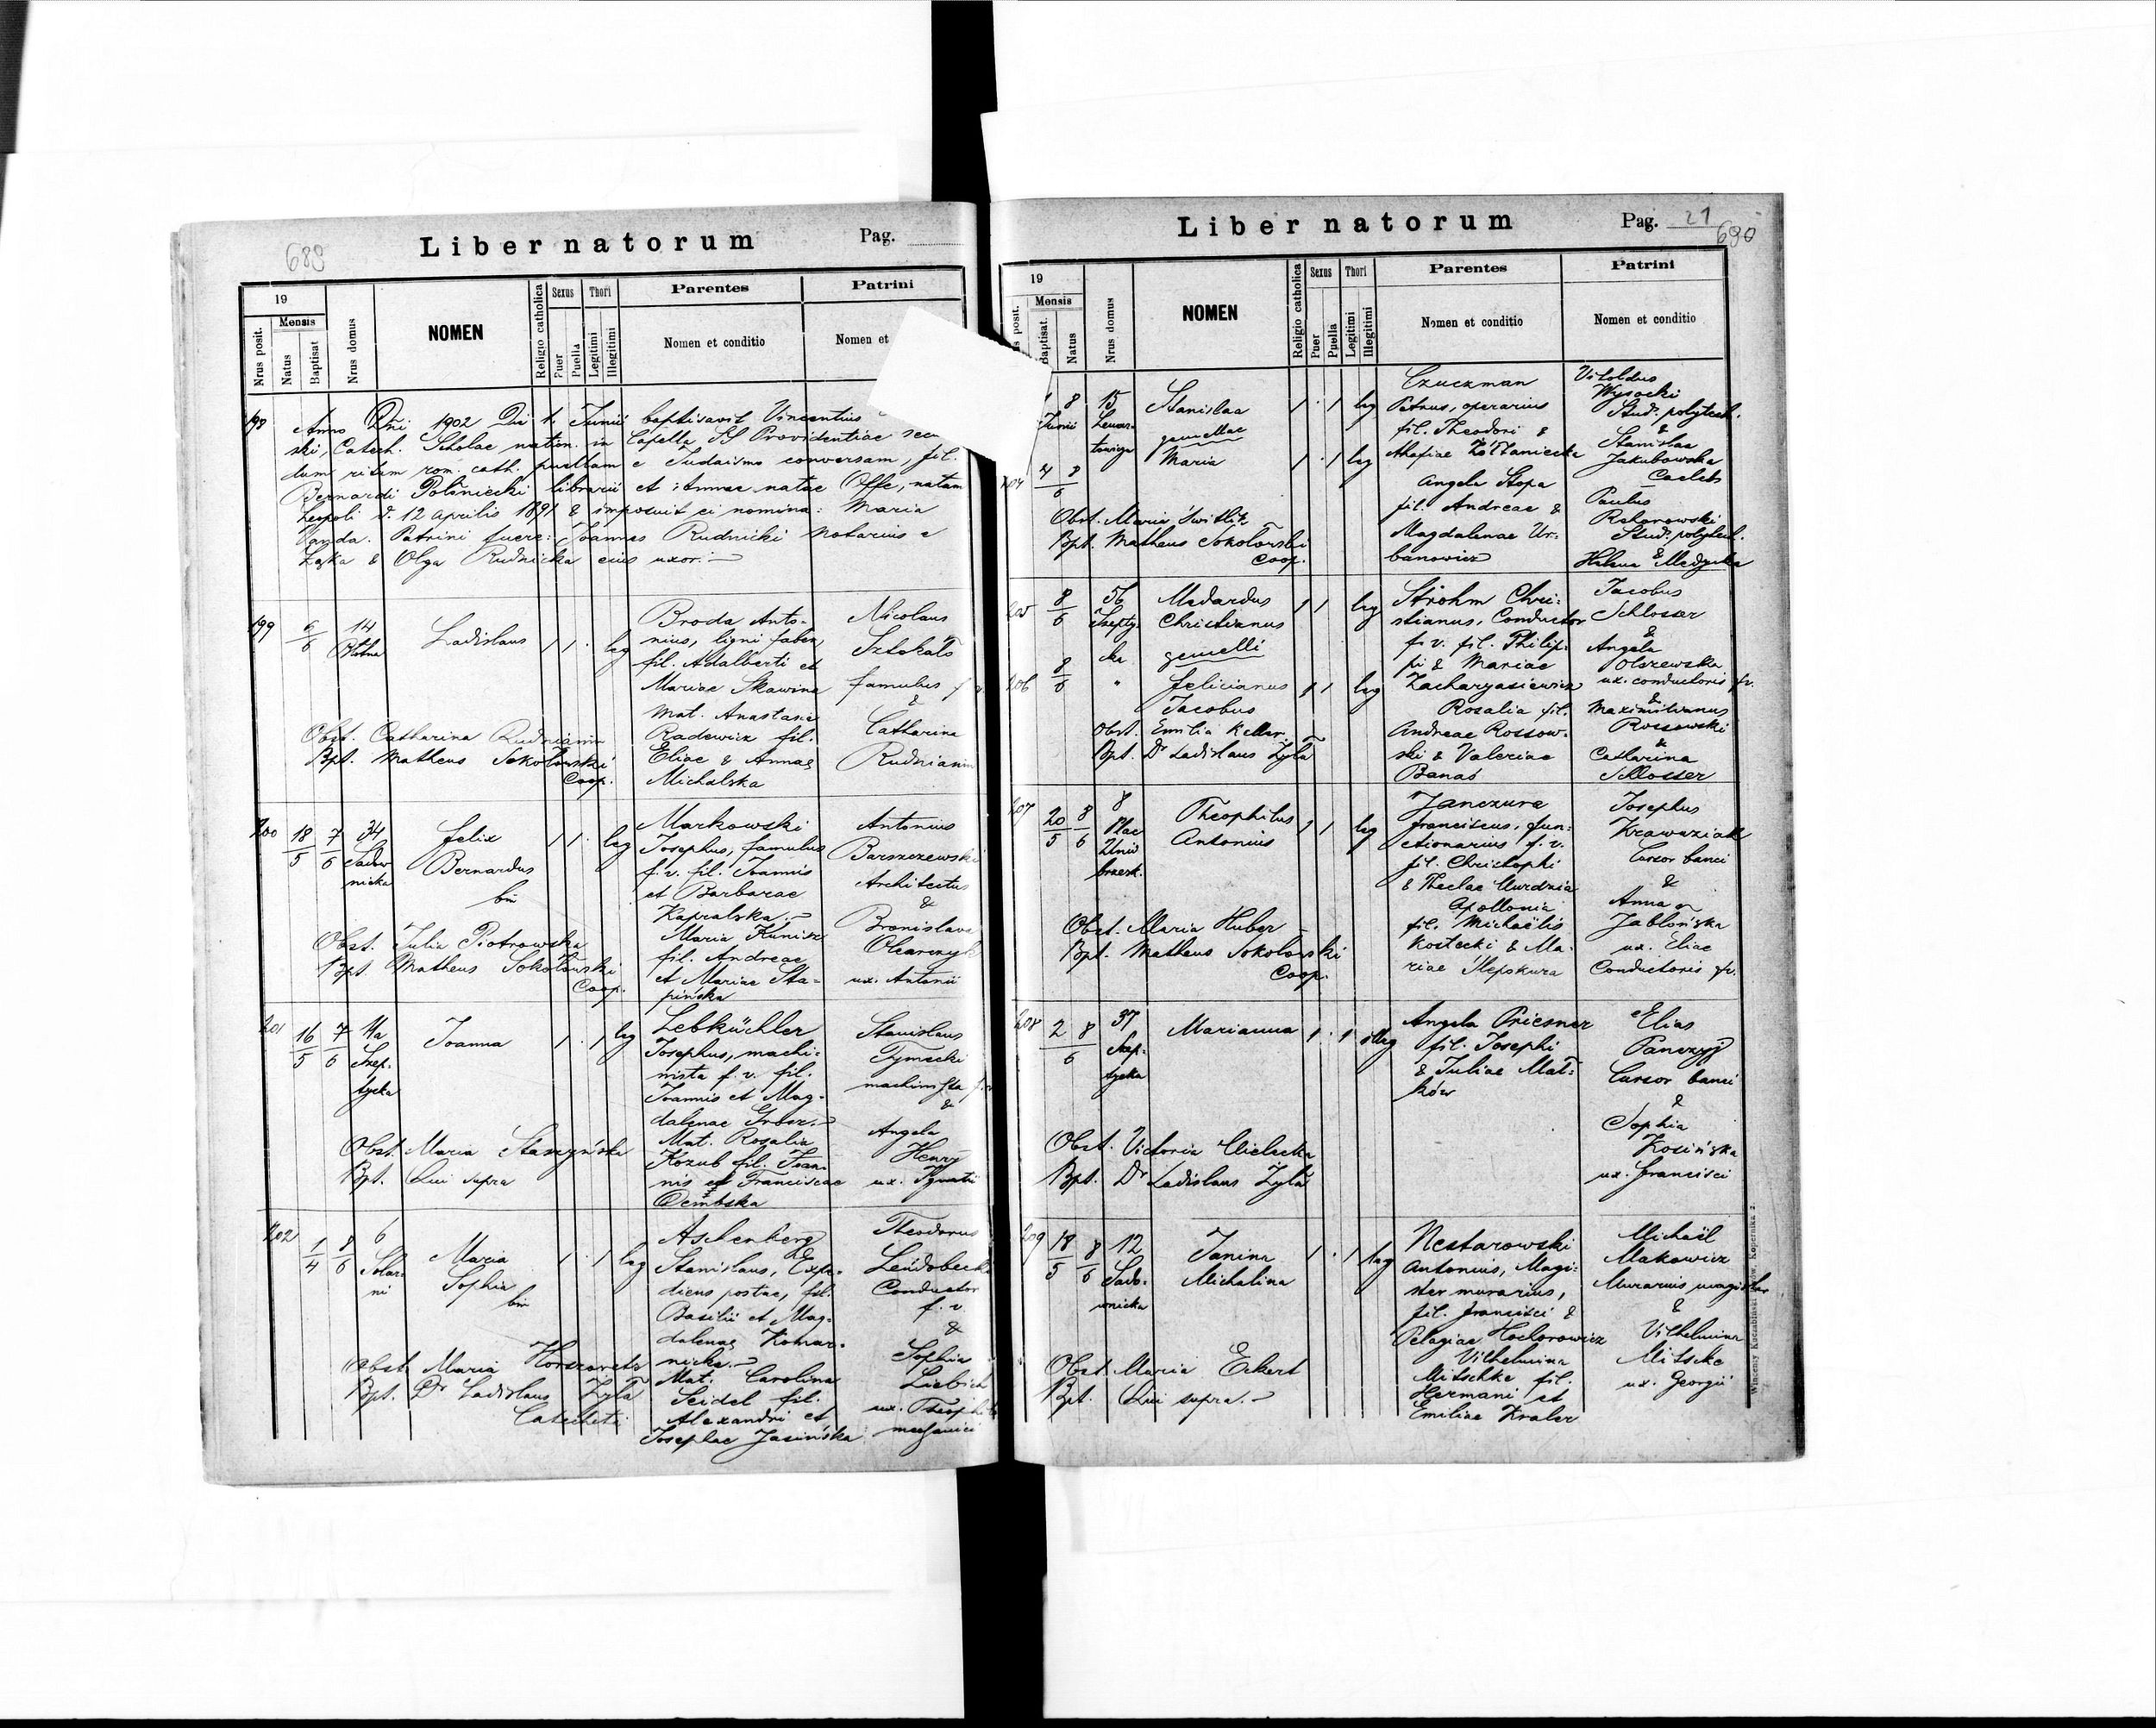 689
Liber natorum
Pag.
19
Mensis
Nrus posit.
Natus
Baptisat
Nrus domus
NOMEN
Religio catholica
Sexus
Puer
Puella
Thori
Legitimi
Illegitimi
Parentes
Nomen et conditio
Patrini
Nomen et
198 Anno Dni 1902 Die 1. Junii baptisavit Vincentius
ski, Catech. Scholae in Capella SS Providentiae
dum ritum rom. cath. puellam e Judaismo conversam, fil.
Bernardi Polśniecki librarii et Annae natae Offe, natam
Leopoli d. 12 Aprilis 1891 & imposuit ei nomina: Maria
Vanda. Patrini fuere: Joannes Rudnicki Notarius e
& Olga Rudnicka eius uxor.
199
6/6
14
Ladislaus
1 1 · leg
Broda Anto-
nius, ligni faber,
fil. Adalberti et
Mariae Skawina
Mat. Anastasia
Radewicz fil.
Eliae & Annae
Michalska
Nicolaus
Sztokało
famulus
&
Catharina
Rudnianin
Obst. Catharina Rudnianin
Bpt. Matheus Sokołowski
Coop.
200
18/5 7/6
34
Sadow
nicka
Felix
Bernardus
bin
1 1 · leg
Markowski
Josephus, famulus
f. v. fil. Joannis
et Barbarae
Kapralska.
Maria Kunisz
fil. Andreae
et Mariae Sta-
pińska
Antonius
Barszczewski
Architectus
&
Bronislava
Olearczyk
ux. Antonii
Obst. Julia Piotrowska
Bpt. Matheus Sokołowski
Coop.
201
16/5 7/6
11a
Szep-
tycka
Joanna
1 · 1 leg
Lebküchler
Josephus, machi-
nista f. v. fil.
Joannis et Mag-
dalenae
Mat. Rosalia
Kozub fil. Joan-
nis et Franciscae
Dembska
Stanislaus
Tymecki
machinista
&
Angela
Henry
ux. Ignatii
Obst. Maria Staszyńska
Bpt. Qui supra
202
1/4 8/6
6
Solar
ni
Maria
Sophia
bin
1 · 1 leg
Aschenberg
Stanislaus, Expe-
diens postae, fil.
Basilii et Mag-
dalenae Komar-
nicka.
Mat. Carolina
Seidel fil.
Alexandri et
Josephae Jasińska
Theodorus
Leidobecki
Conductor
f. v.
&
Sophia
Liebich
ux. Theophili
mechanici
Obst. Maria Horszowets
Bpt. Dr Ladislaus Zyła
Catecheta
Liber natorum
Pag. 21
690
19
Mensis
posit.
Baptisat.
Natus
Nrus domus
NOMEN
Religio catholica
Sexus
Puer
Puella
Thori
Legitimi
Illegitimi
Parentes
Nomen et conditio
Patrini
Nomen et conditio
8
Junii
15
Lenar-
towicza
Stanislaa
gemellae
Maria
1 · 1 leg
1 · 1 leg
204
Czuczman
Petrus, operarius
fil. Theodori &
Żółtaniecka
Angela Stopa
fil. Andreae &
Magdalenae Ur-
banowicz
Vitoldus
Wysocki
Stud. polytech.
&
Stanislaa
Jakubowska
Caelebs
Paulus
Stud. polytech.
&
Helena Medycka
Obst. Maria Switlik
Bpt. Matheus Sokołowski
Coop.
205
8/6
56
Szepty-
cka
Medardus
Christianus
gemelli
1 1 leg
206
8/6
"
Felicianus
Jacobus
1 1 leg
Strohm Chri-
stianus, Conductor
f. v. fil. Philip-
pi & Mariae
Zacharyasiewicz
Rosalia fil.
Andreae Rossow-
ski & Valeriae
Banaś
Jacobus
Schloser
&
Angela
Olszewska
ux. conductoris f.v.
&
Maximilianus
Rossowski
&
Catharina
Schlosser
Obst. Emilia Keller
Bpt. Dr Ladislaus Zyła
207
20/5 8/6
8
Plac
Unii
brzesk.
Theophilus
Antonius
1 1 leg
Janczura
Franciscus, fun-
ctionarius f. v.
fil. Christophi
& Theclae Murdzia
Apollonia
fil. Michaëlis
Kostecki & Ma-
riae Ślepskura
Josephus
Krawaziak
Cursor banci
&
Anna
Jabłońska
ux. Eliae
Conductoris f.v.
Obst. Maria Huber
Bpt. Matheus Sokołowski
Coop.
208
2/6 8
37
Szep-
tycka
Marianna
1 · 1 illeg
Angela Priesner
fil. Josephi
& Juliae Mał-
ków
Elias
Panczyj
Cursor banci
&
Sophia
Kosińska
ux. Francisci
Obst. Victoria Cielecka
Bpt. Dr Ladislaus Zyła
209
18/5 8/6
12
Sado-
wnicka
Janina
Michalina
1 · 1 leg
Nestarowski
Antonius, Magi-
ster murarius,
fil. Francisci &
Pelagiae Hochorowicz
Vilhelmina
Mitschke fil.
Hermani et
Emiliae Kraler
Michaël
Makowicz
Murarius magister
&
Vilhelmina
Mitscke
ux. Georgii
Obst. Maria Eckert
Bpt. Qui supra.